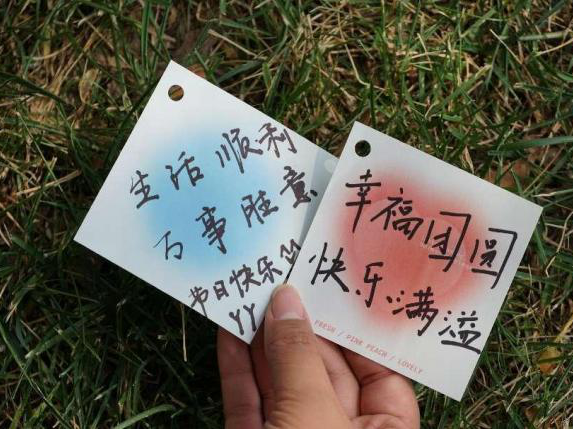 生活顺利
万事胜意
节日快乐
YY
幸福团圆
快乐满溢
FRESH / PINK PEACH / LOVELY